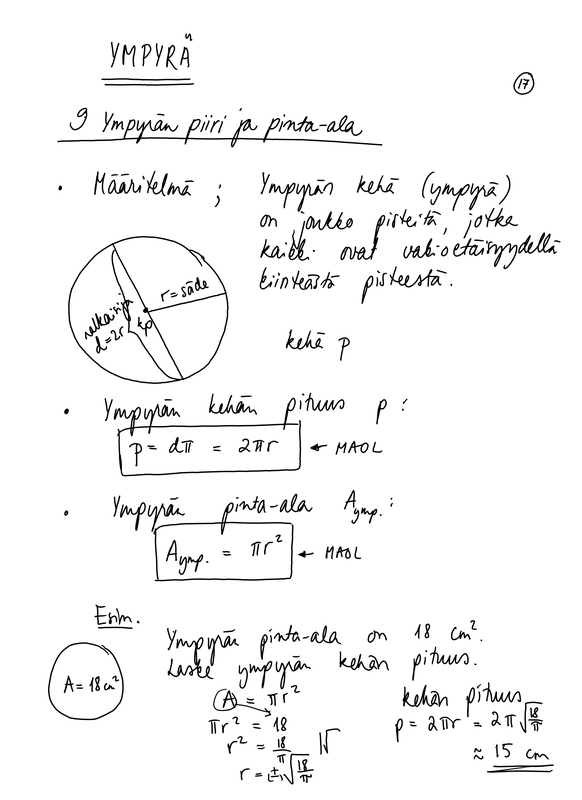 YMPYRÄ
17
9 Ympyrän piiri ja pinta-ala
• Määritelmä ; Ympyrän kehä (ympyrä)
on joukko pisteitä, jotka
kaikki ovat vakioetäisyydellä
kiinteästä pisteestä.
r = säde
halkaisija
d = 2r
kp
kehä p
• Ympyrän kehän pituus p :
p = dπ = 2πr ← MAOL
• Ympyrän pinta-ala Aymp. :
Aymp. = πr² ← MAOL
Esim.
Ympyrän pinta-ala on 18 cm².
Laske ympyrän kehän pituus.
A = 18 cm²
A = πr²
πr² = 18
r² = 18/π |√
r = (±)√(18/π)
kehän pituus
p = 2πr = 2π√(18/π)
≈ 15 cm